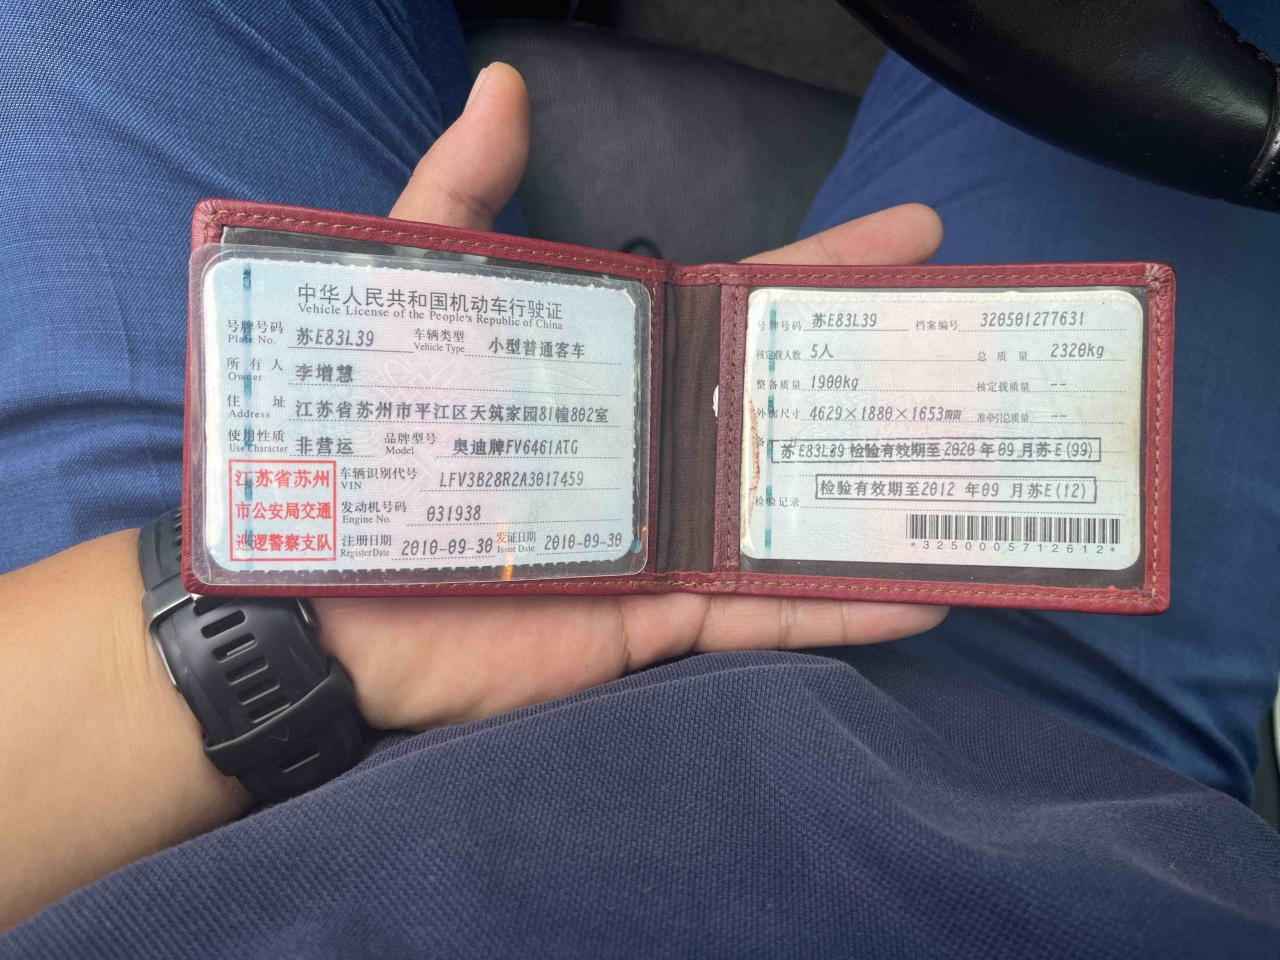 中华人民共和国机动车行驶证
Vehicle License of the People's Republic of China
号牌号码 苏E83L39 车辆类型 小型普通客车
Plate No. Vehicle Type
所有人 李增慧
Owner
住址 江苏省苏州市平江区天筑家园81幢802室
Address
使用性质 非营运 品牌型号 奥迪牌FV6461ATG
Use Character Model
江苏省苏州
市公安局交通
巡逻警察支队
车辆识别代号 LFV3B28R2A3017459
VIN
发动机号码 031938
Engine No.
注册日期 2010-09-30 发证日期 2010-09-30
Register Date Issue Date
号牌号码 苏E83L39 档案编号 320501277631
核定载人数 5人 总质量 2320kg
整备质量 1900kg 核定载质量 --
外廓尺寸 4629×1880×1653mm 准牵引总质量 --
备注
苏E83L39 检验有效期至2020年09月苏E(99)
检验有效期至2012 年09 月苏E(12)
检验记录
*3250005712612*